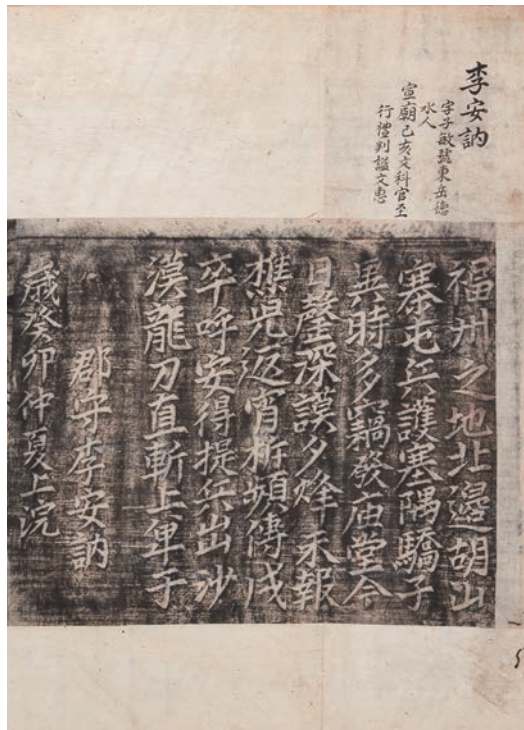 李安訥
字子敏號東岳德
水人
宣廟己亥文科官至
行禮判諡文惠
福州之地北邊胡山
塞屯兵護塞隅驕子
異時多竊發庙堂今
日罄深謨夕烽未報
樵兒返宵柝頻傳戍
卒呼安得提兵出沙
漠龍刀直斬上單于
郡守李安訥
歲癸卯仲夏上浣